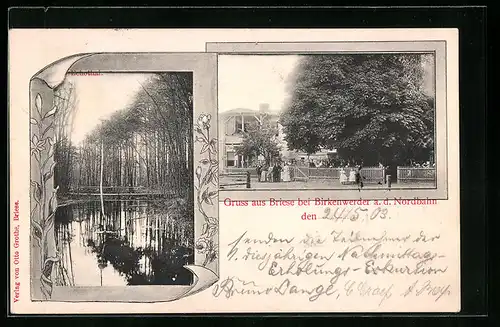 Gruss aus Briese bei Birkenwerder a. d. Nordbahn
den 24/5. 03.
senden die Teilnehmer der
diesjährigen Nachmittags-
Erholungs-Exkursion
Bruno Lange,
Verlag von Otto Grothe, Briese.